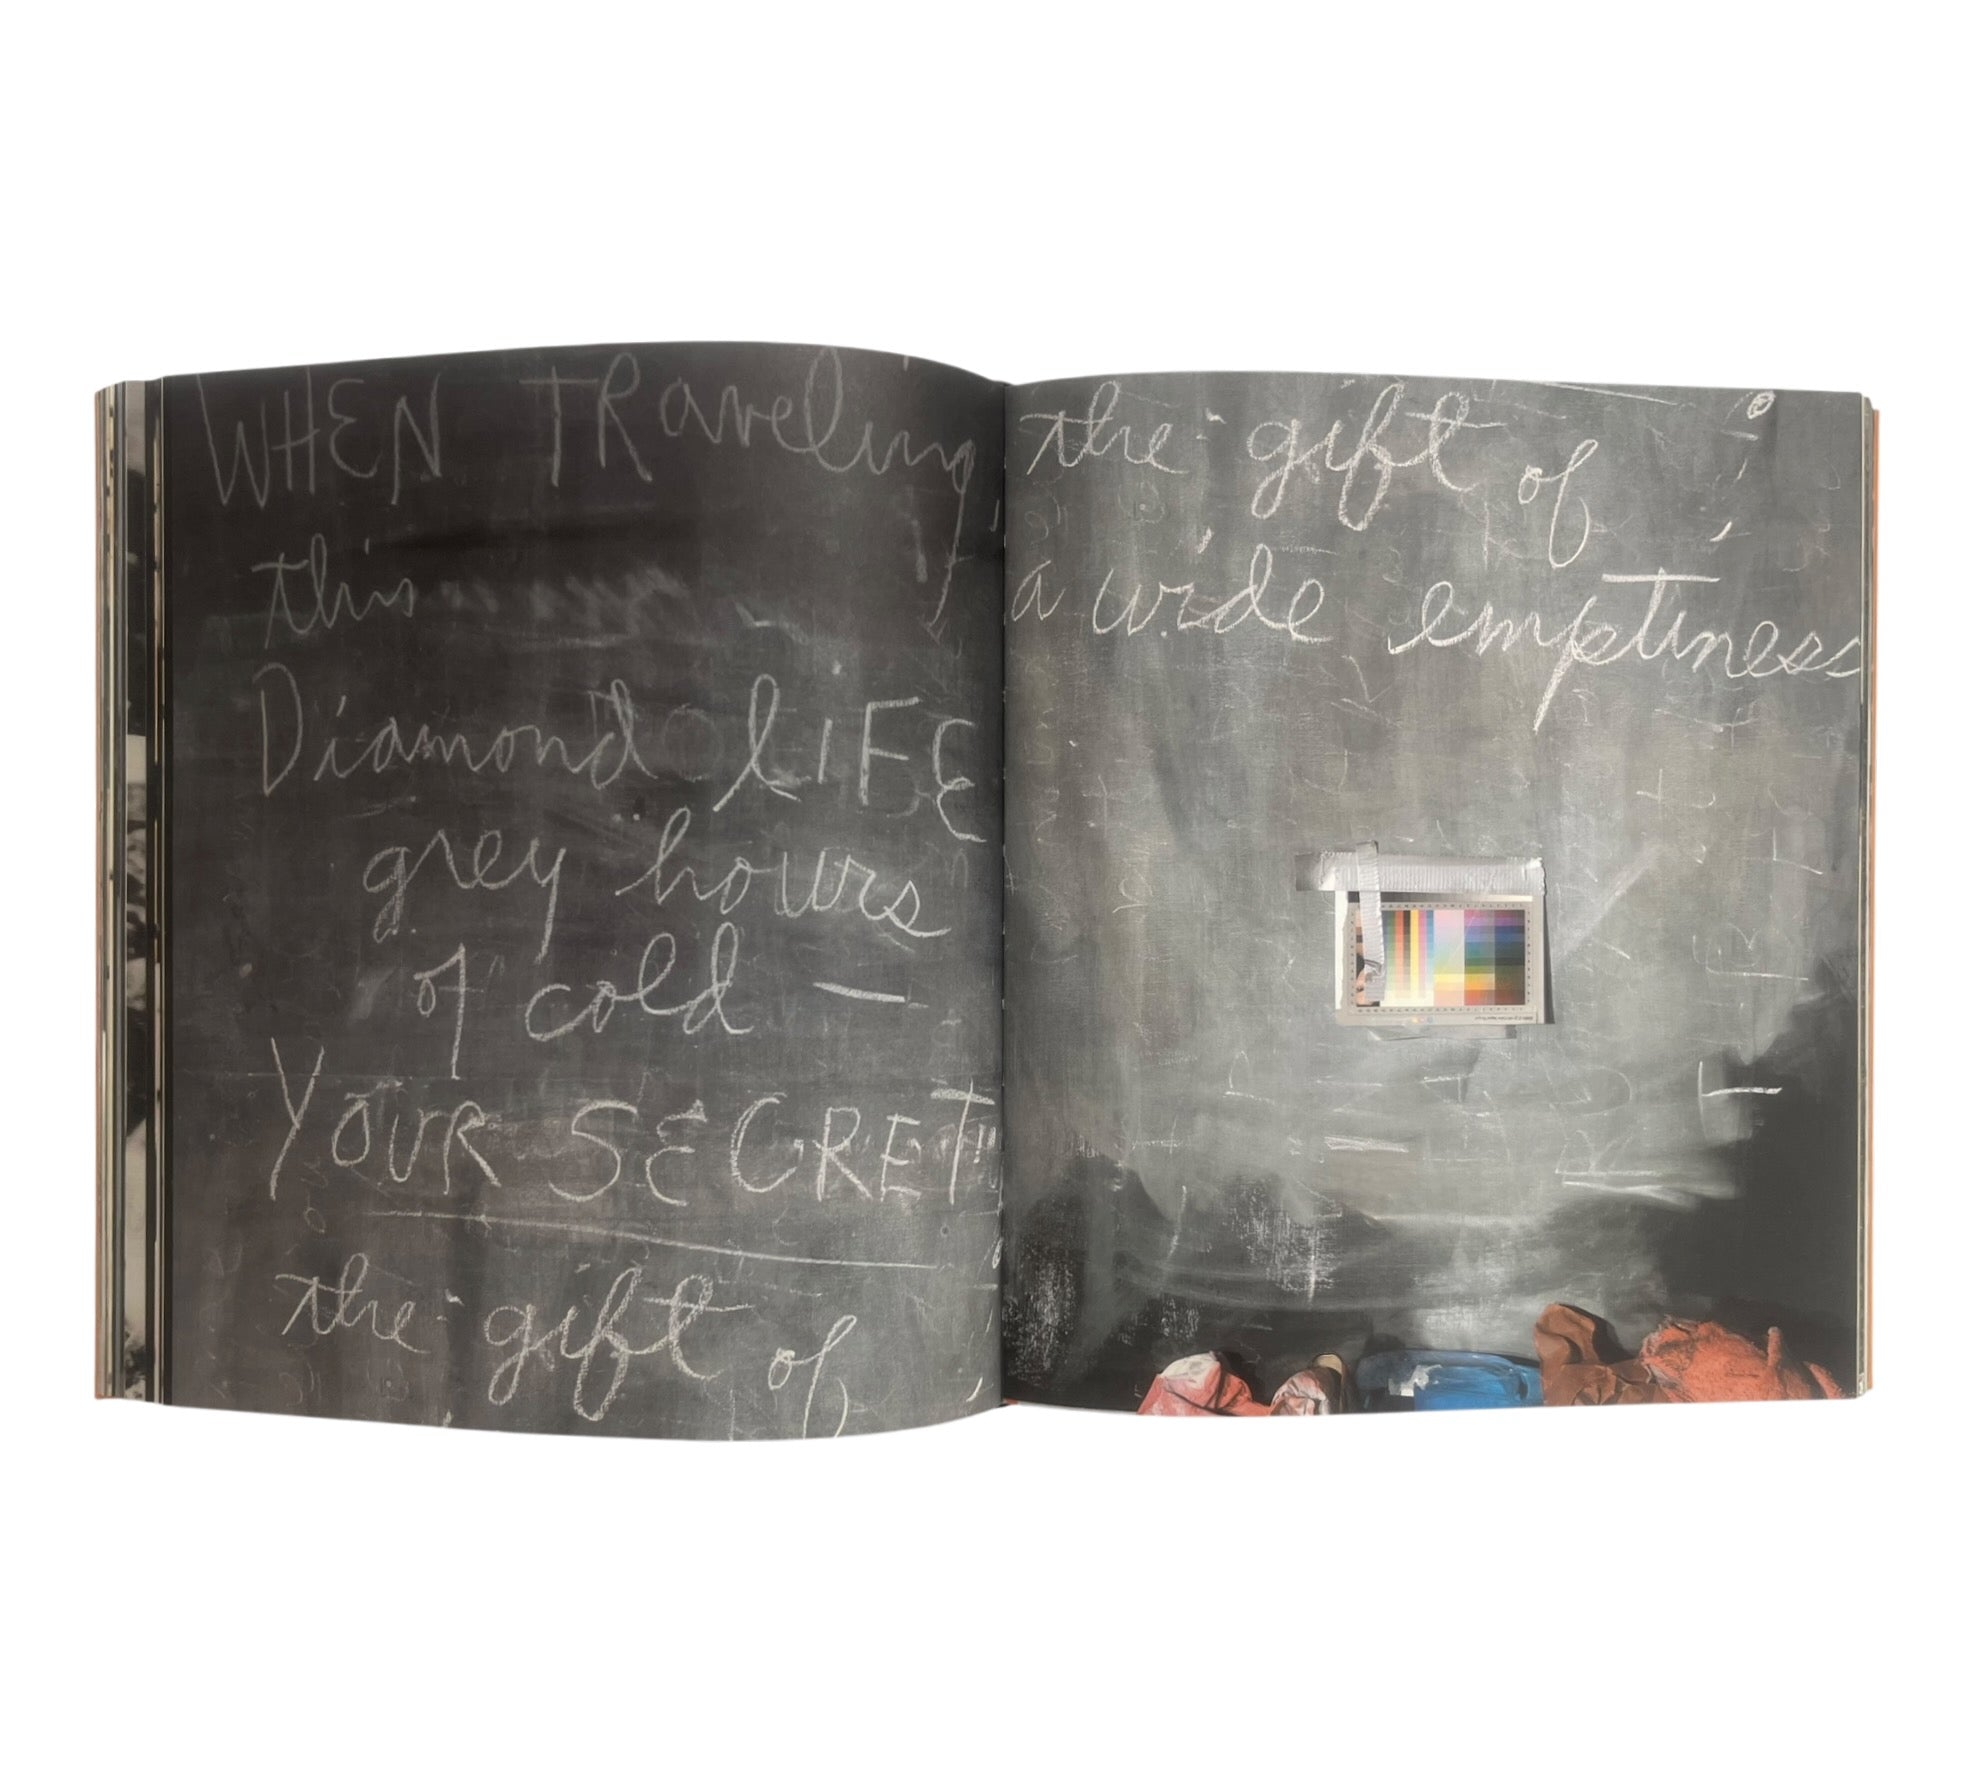 WHEN TRaveling
this
Diamond lIFE
grey hours
of cold —
YOUR SECRET
the gift of
the gift of
a wide emptiness